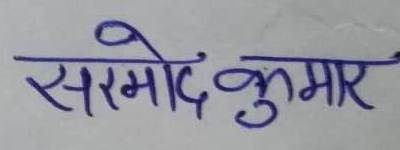 सरमोद कुमार